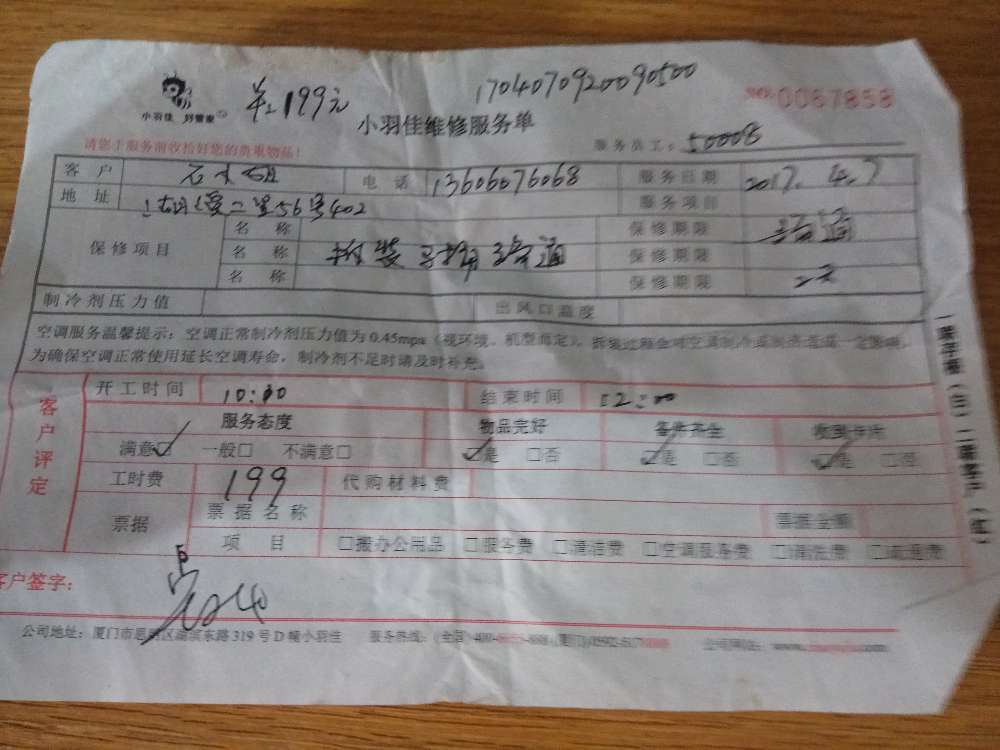 小羽佳 好管家
单:199元
1704070920090500
NO:0067858
小羽佳维修服务单
请您上服务前收拾好您的贵重物品!
服务员工:50008
客户 电话 13606076068 服务日期 2017.4.7
地址 二里56号402 服务项目
保修项目
名称 保修期限
名称 疏通 保修期限
名称 保修期限
制冷剂压力值 出风口温度
空调服务温馨提示:空调正常制冷剂压力值为0.45mpa(视环境、机型而定),
为确保空调正常使用延长空调寿命,制冷剂不足时请及时补充。
客户评定
开工时间 10:00 结束时间 12:00
服务态度 物品完好
满意☑ 一般□ 不满意□ ☑是 □否 ☑是 □否 ☑是 □否
工时费 199 代购材料费
票据 票据名称 票据金额
项目 □搬办公用品 □服务费 □清洁费 □空调服务费 □清洗费 □疏通费
客户签字:
公司地址:厦门市思明区湖滨东路319号D幢小羽佳 服务热线:(全国)400- 公司网站:www.
一联存根(白)二联客户(红)